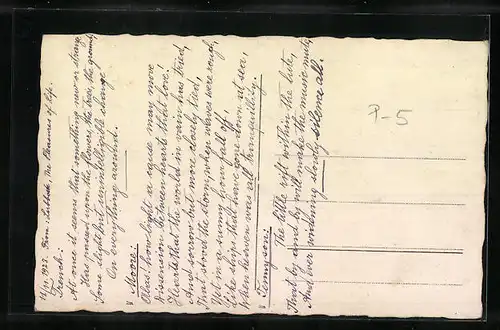 11/IV 1923. From: Lubbock, The Pleasures of life.
Trench:
At once it seems that something new or strange
Has passed upon the flowers, the trees, the ground,
Some slight but unintelligible change
On everything around.
" Moore:
Alas! how light a cause may move
Dissension between hearts that love!
Hearts that the world in vain has tried,
And sorrow but more closely tied,
That stood the storm, when waves were rough,
Yet in a sunny hour fall off,
Like ships that have gone down at sea,
When heaven was all tranquillity.
" Tennyson:
The little rift within the lute,
That by and by will make the music mute,
And ever widening slowly silence all.
P-5